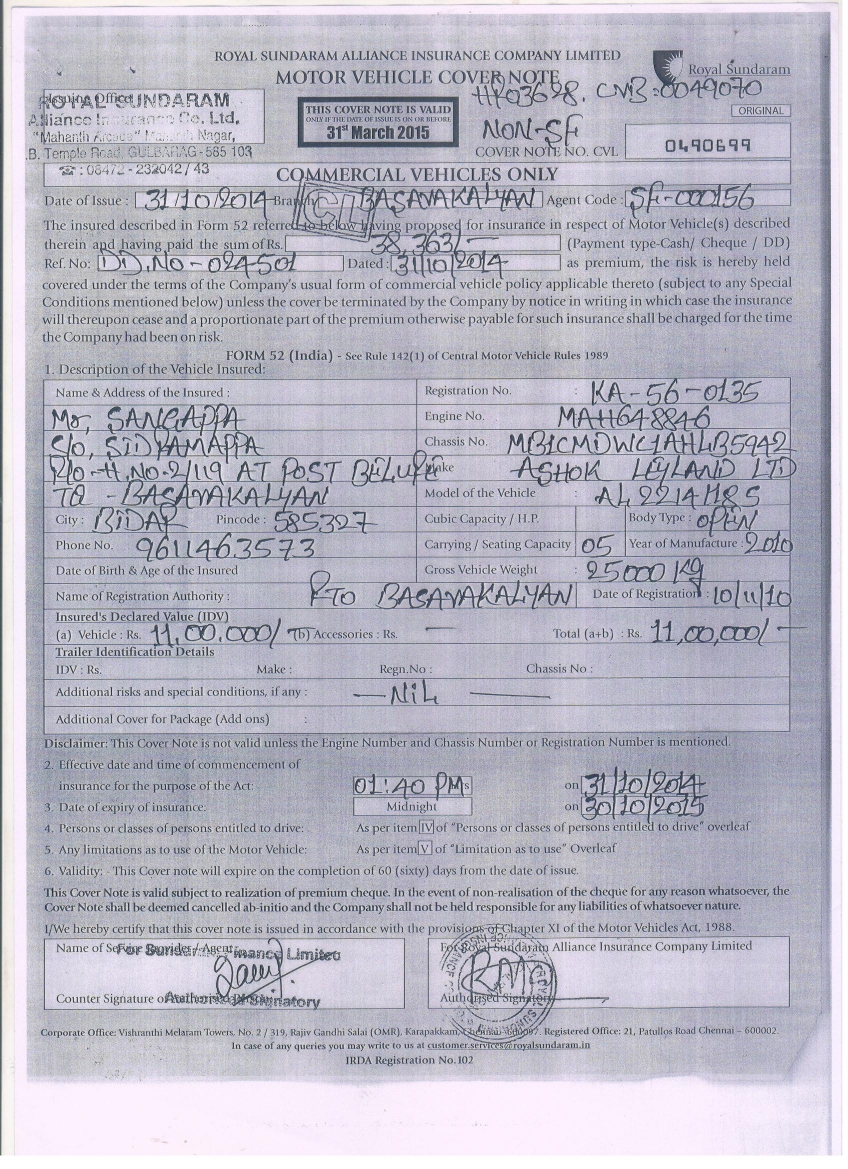 ROYAL SUNDARAM ALLIANCE INSURANCE COMPANY LIMITED
MOTOR VEHICLE COVER NOTE
Royal Sundaram
HP03628. CMB:0049070
ROYAL SUNDARAM
Alliance Insurance Co. Ltd.
"Mahanth Arcade" Nagar,
B. Temple Road, GULBARAG - 585 103
☎ : 08472 - 232042 / 43
THIS COVER NOTE IS VALID
ONLY IF THE DATE OF ISSUE IS ON OR BEFORE
31st March 2015
ORIGINAL
NON-SF
COVER NOTE NO. CVL 0490699
COMMERCIAL VEHICLES ONLY
Date of Issue : 31/10/2014 Branch BASAVAKALYAN Agent Code : SF-000156
The insured described in Form 52 referred to below having proposed for insurance in respect of Motor Vehicle(s) described
therein and having paid the sum of Rs. 38,363/- (Payment type-Cash/ Cheque / DD)
Ref. No: DD.NO-024501 Dated : 31/10/2014 as premium, the risk is hereby held
covered under the terms of the Company's usual form of commercial vehicle policy applicable thereto (subject to any Special
Conditions mentioned below) unless the cover be terminated by the Company by notice in writing in which case the insurance
will thereupon cease and a proportionate part of the premium otherwise payable for such insurance shall be charged for the time
the Company had been on risk.
FORM 52 (India) - See Rule 142(1) of Central Motor Vehicle Rules 1989
1. Description of the Vehicle Insured:
Name & Address of the Insured : Registration No. : KA-56-0135
Mr, SANGAPPA Engine No. MAH648846
S/o, SIDYAMAPPA Chassis No. MB1CMDWC1AHLB5942
R/o-H.No-2/119 AT POST Make ASHOK LEYLAND LTD
TQ - BASAVAKALYAN Model of the Vehicle : AL 2214 H85
City : BIDAR Pincode : 585327 Cubic Capacity / H.P. Body Type : OPEN
Phone No. 9611463573 Carrying / Seating Capacity 05 Year of Manufacture : 2010
Date of Birth & Age of the Insured Gross Vehicle Weight : 25000 KG
Name of Registration Authority : RTO BASAVAKALYAN Date of Registration : 10/11/10
Insured's Declared Value (IDV)
(a) Vehicle : Rs. 11,00,000/ (b) Accessories : Rs. — Total (a+b) : Rs. 11,00,000/-
Trailer Identification Details
IDV : Rs. Make : Regn.No : Chassis No :
Additional risks and special conditions, if any : — NiL —
Additional Cover for Package (Add ons) :
Disclaimer: This Cover Note is not valid unless the Engine Number and Chassis Number or Registration Number is mentioned.
2. Effective date and time of commencement of
insurance for the purpose of the Act: 01:40 PM on 31/10/2014
3. Date of expiry of insurance: Midnight on 30/10/2015
4. Persons or classes of persons entitled to drive: As per item IV of "Persons or classes of persons entitled to drive" overleaf
5. Any limitations as to use of the Motor Vehicle: As per item V of "Limitation as to use" Overleaf
6. Validity: - This Cover note will expire on the completion of 60 (sixty) days from the date of issue.
This Cover Note is valid subject to realization of premium cheque. In the event of non-realisation of the cheque for any reason whatsoever, the
Cover Note shall be deemed cancelled ab-initio and the Company shall not be held responsible for any liabilities of whatsoever nature.
I/We hereby certify that this cover note is issued in accordance with the provisions of Chapter XI of the Motor Vehicles Act, 1988.
Name of / Agent For Finance Limited
For Royal Sundaram Alliance Insurance Company Limited
Counter Signature of Authorised Signatory
Authorised Signatory
Corporate Office: Vishranthi Melaram Towers, No. 2 / 319, Rajiv Gandhi Salai (OMR), Karapakkam, Chennai - 600097. Registered Office: 21, Patullos Road Chennai – 600002.
In case of any queries you may write to us at customer.services@royalsundaram.in
IRDA Registration No.102